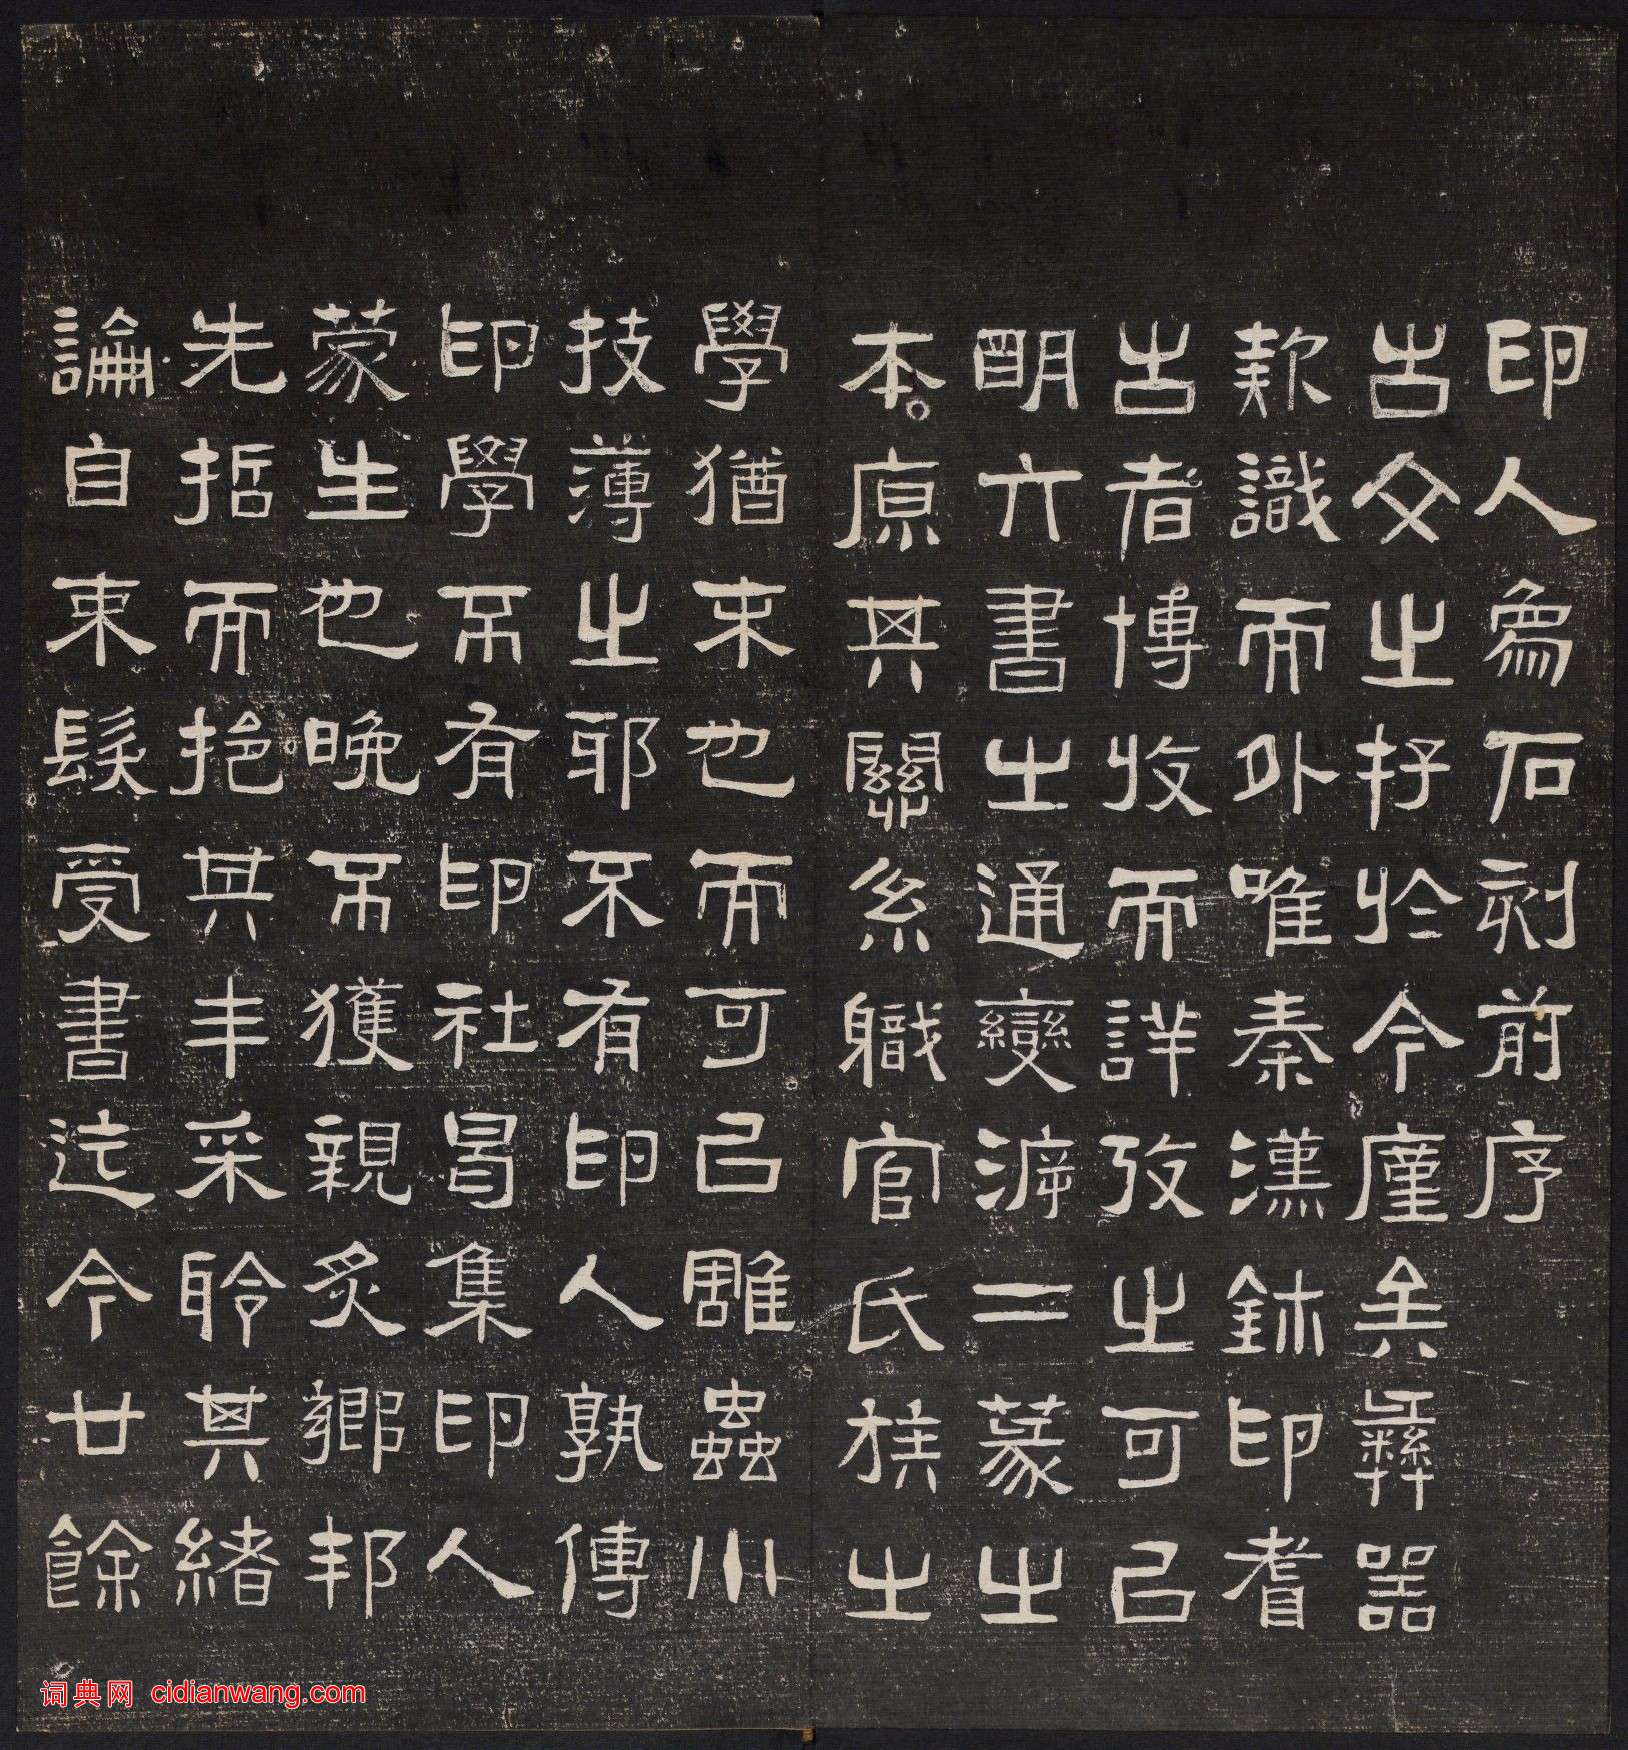 印人象石刻前序
古文之存於今廑矣彝器
款識而外唯秦漢鉥印耆
古者博收而詳攷之可㠯
明六書之通變泝二篆之
本原其關系職官氏族之
學猶末也而可㠯雕蟲小
技薄之耶不有印人孰傳
印學不有印社曷集印人
蒙生也晚不獲親炙鄉邦
先哲而挹其丰采聆其緒
論自束髮受書迄今廿餘
词典网 cidianwang.com